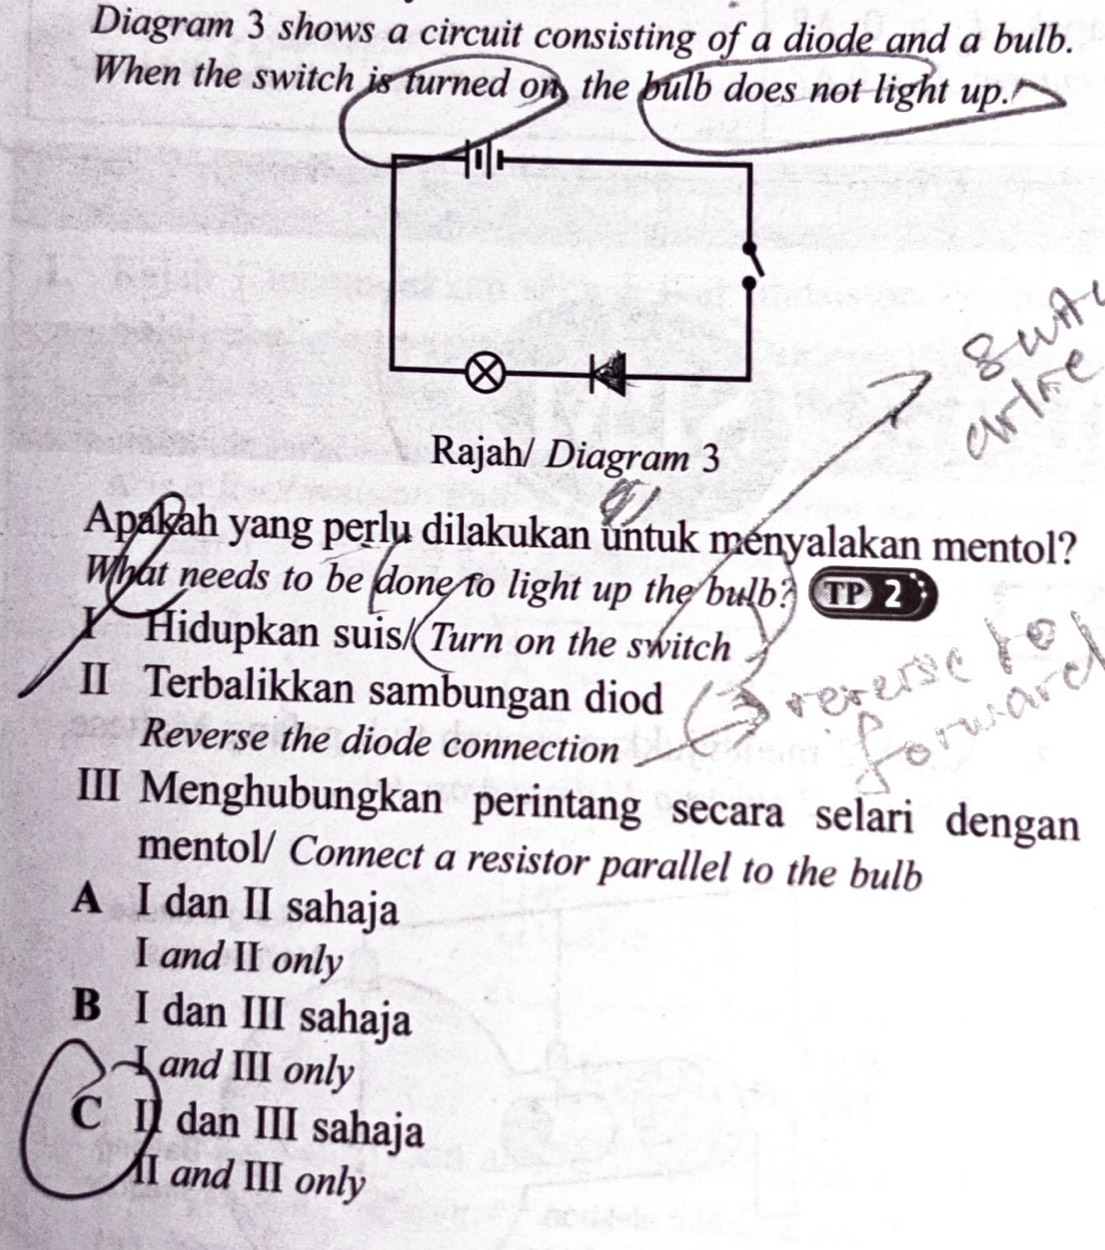 Diagram 3 shows a circuit consisting of a diode and a bulb.
When the switch is turned on, the bulb does not light up.
Rajah/ Diagram 3
Apakah yang perlu dilakukan untuk menyalakan mentol?
What needs to be done to light up the bulb? TP 2
I Hidupkan suis/ Turn on the switch
II Terbalikkan sambungan diod
Reverse the diode connection
reverse to
forward
III Menghubungkan perintang secara selari dengan
mentol/ Connect a resistor parallel to the bulb
A I dan II sahaja
I and II only
B I dan III sahaja
I and III only
C II dan III sahaja
II and III only